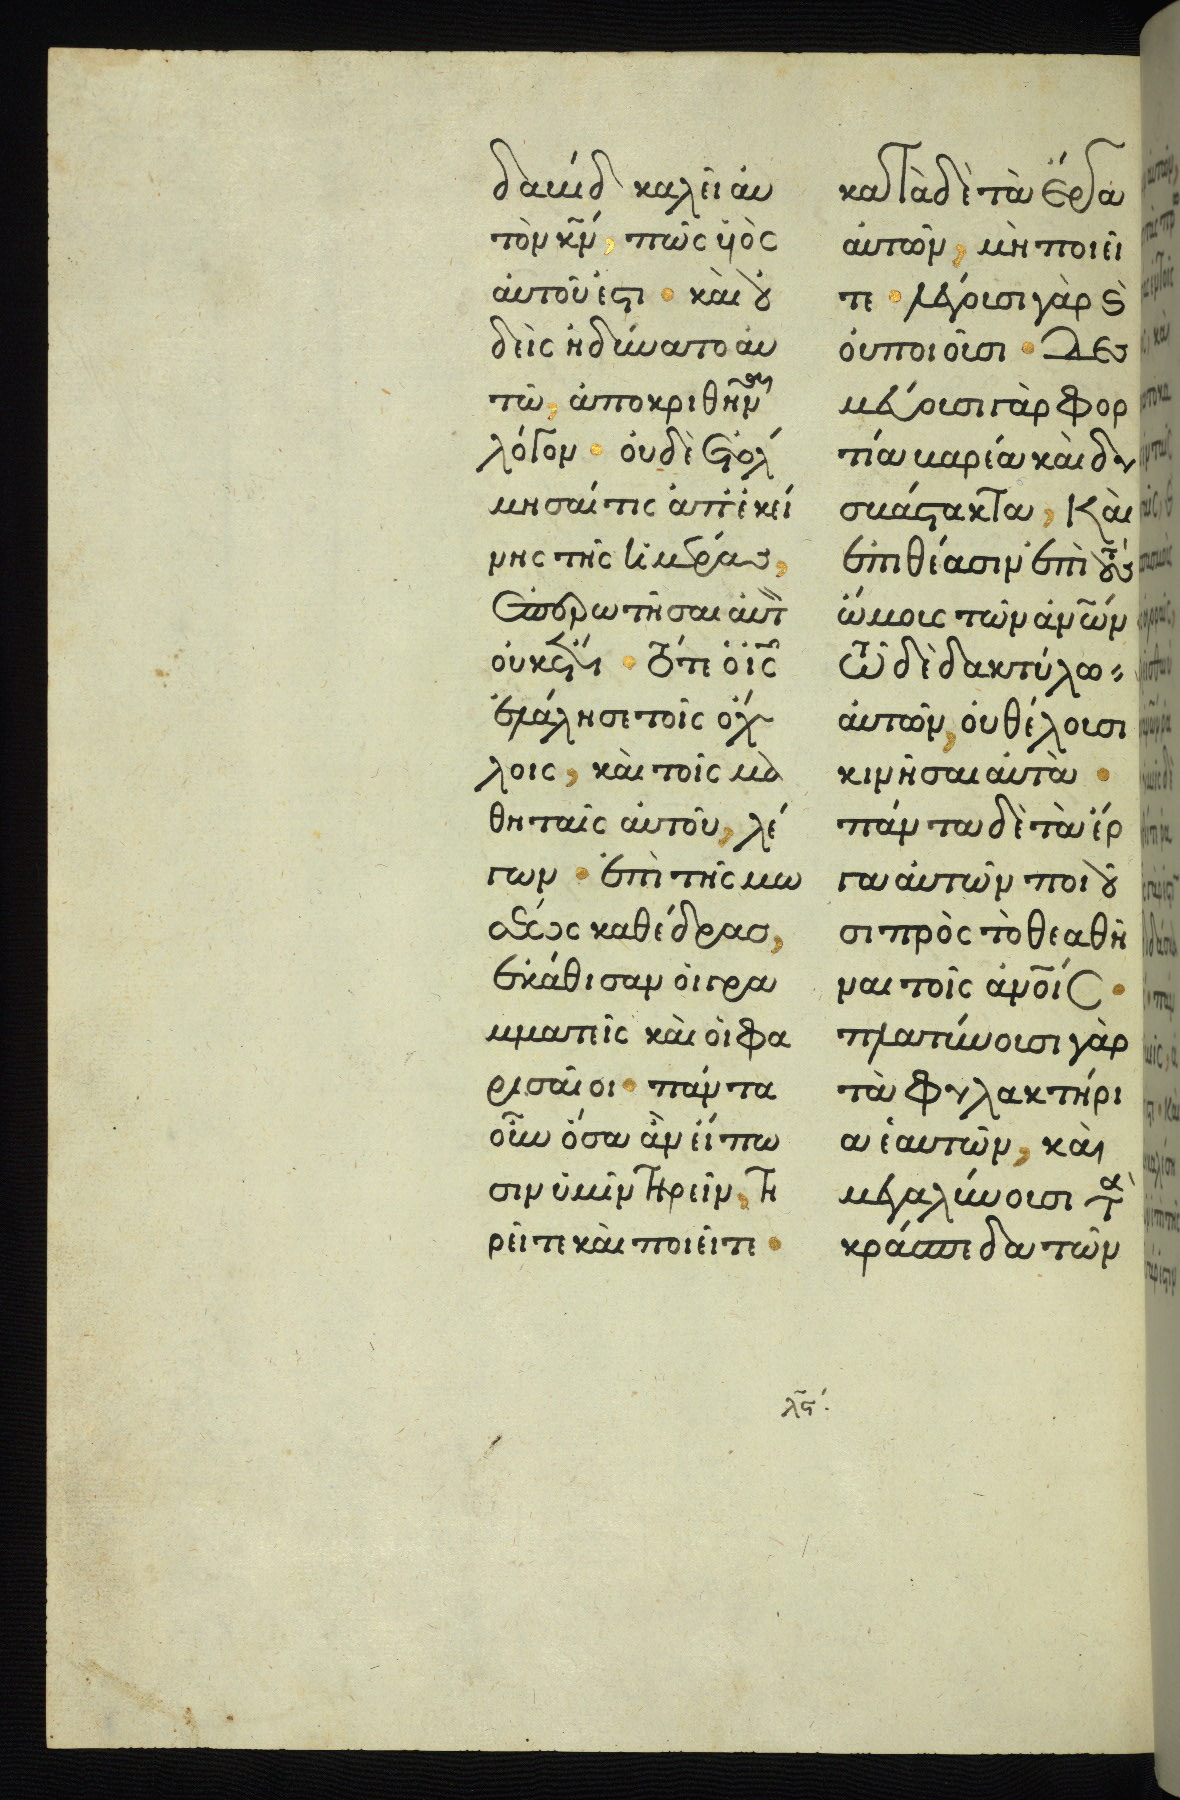 δαυίδ καλεῖ αυ
τὸν κ̅ν̅, πῶς υἱὸς
ἀυτοῦ ἐστι · καὶ ὀυ
δεὶς ἠδύνατο ἀυ
τῶ, ἀποκριθῆναι
λόγον · ὀυδὲ ἐτόλ
μησαί τις ἀπ ἐκεί
νης τῆς ἡμέρας,
ἐπερωτῆσαι ἀυτὸν
ὀυκέτι · Ὅτε ὁ ἰ̅ς̅
ἐλάλησε τοῖς ὄχ
λοις, καὶ τοῖς μα
θηταῖς ἀυτοῦ, λέ
γων · ἐπὶ τῆς μω
σέως καθέδρας,
ἐκάθισαν ὁι γρα
μματεῖς καὶ ὁι φα
ρισαῖοι · πάντα
οὖν ὅσα ἂν εἴπω
σιν ὑμῖν τηρεῖν, τη
ρεῖτε καὶ ποιεῖτε ·
κατὰ δὲ τὰ ἔργα
ἀυτῶν, μὴ ποιεῖ
τε · λέγουσι γὰρ καὶ
ὀυ ποιοῦσι · Δεσ
μεύουσι γὰρ φορ
τία βαρέα καὶ δυ
σβάστακτα, Καὶ
ἐπιτιθέασιν ἐπὶ τοὺς
ὤμους τῶν ἀν̅ω̅ν
Τῶ δὲ δακτύλω
ἀυτῶν, ὀυ θέλουσι
κινῆσαι ἀυτὰ ·
πάντα δὲ τὰ ἔρ
γα ἀυτῶν ποιοῦ
σι πρὸς τὸ θεαθῆ
ναι τοῖς ἀν̅ο̅ις ·
πλατύνουσι γὰρ
τὰ φυλακτήρι
α ἑαυτῶν, καὶ
μεγαλύνουσι τὰ
κράσπεδα τῶν
λϛ